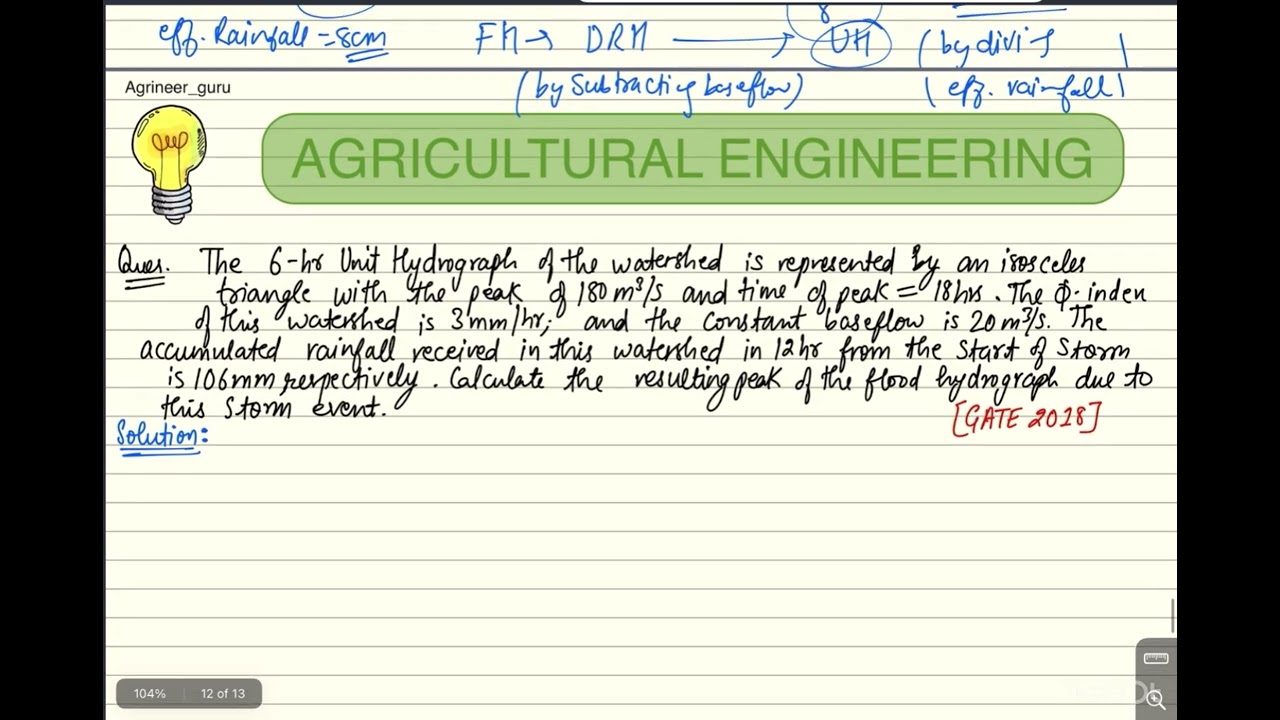 eff. Rainfall = 8cm FH → DRH → UH (by divi
(by Subtracting baseflow) eff. rainfall)
Agrineer_guru
AGRICULTURAL ENGINEERING
Ques. The 6-hr Unit Hydrograph of the watershed is represented by an isosceles
triangle with the peak of 180 m³/s and time of peak = 18hrs. The Φ-index
of this watershed is 3mm/hr; and the constant baseflow is 20 m³/s. The
accumulated rainfall received in this watershed in 12hr from the start of storm
is 106mm, respectively. Calculate the resulting peak of the flood hydrograph due to
this storm event.
[GATE 2018]
Solution:
104% 12 of 13